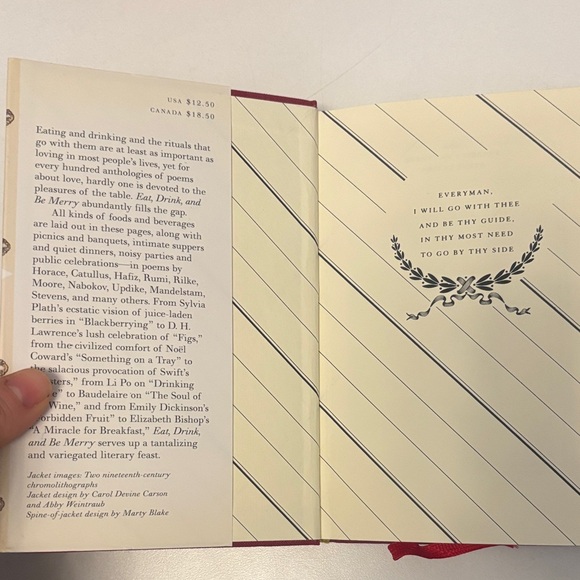 USA $12.50
CANADA $18.50
Eating and drinking and the rituals that
go with them are at least as important as
loving in most people's lives, yet for
every hundred anthologies of poems
about love, hardly one is devoted to the
pleasures of the table. Eat, Drink, and
Be Merry abundantly fills the gap.
All kinds of foods and beverages
are laid out in these pages, along with
picnics and banquets, intimate suppers
and quiet dinners, noisy parties and
public celebrations—in poems by
Horace, Catullus, Hafiz, Rumi, Rilke,
Moore, Nabokov, Updike, Mandelstam,
Stevens, and many others. From Sylvia
Plath's ecstatic vision of juice-laden
berries in "Blackberrying" to D. H.
Lawrence's lush celebration of "Figs,"
from the civilized comfort of Noël
Coward's "Something on a Tray" to
the salacious provocation of Swift's
from Li Po on "Drinking
to Baudelaire on "The Soul of
Wine," and from Emily Dickinson's
Fruit" to Elizabeth Bishop's
"A Miracle for Breakfast," Eat, Drink,
and Be Merry serves up a tantalizing
and variegated literary feast.
Jacket images: Two nineteenth-century
chromolithographs
Jacket design by Carol Devine Carson
and Abby Weintraub
Spine-of-jacket design by Marty Blake
EVERYMAN,
I WILL GO WITH THEE
AND BE THY GUIDE,
IN THY MOST NEED
TO GO BY THY SIDE